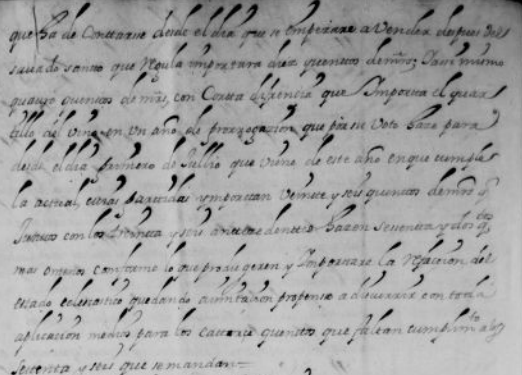 que ha de Contarse desde el dia que se empezare a Vender despues del
savado santo que Regula importara diez quentos de mrs; Y asi mismo
quatro quentos de mrs, con Corta diferencia que Importa el quar
tillo del vino en Un año de prorrogazion que por su Voto haze para
desde el dia primero de Jullio que viene de este año en que cumple
la actual, cuias partidas ymportan Veinte y seis quentos de mrs q
Juntos con los treinta y seis hazen sesenta y dos qtos
mas o menos conforme lo que produgeren y Importare la refaccion del
estado eclesiastico quedando aiuntazion propenso a discurrir con toda
aplicazion medios para los catorze quentos que faltan cumplimto a los
Setenta y seis que se mandan=